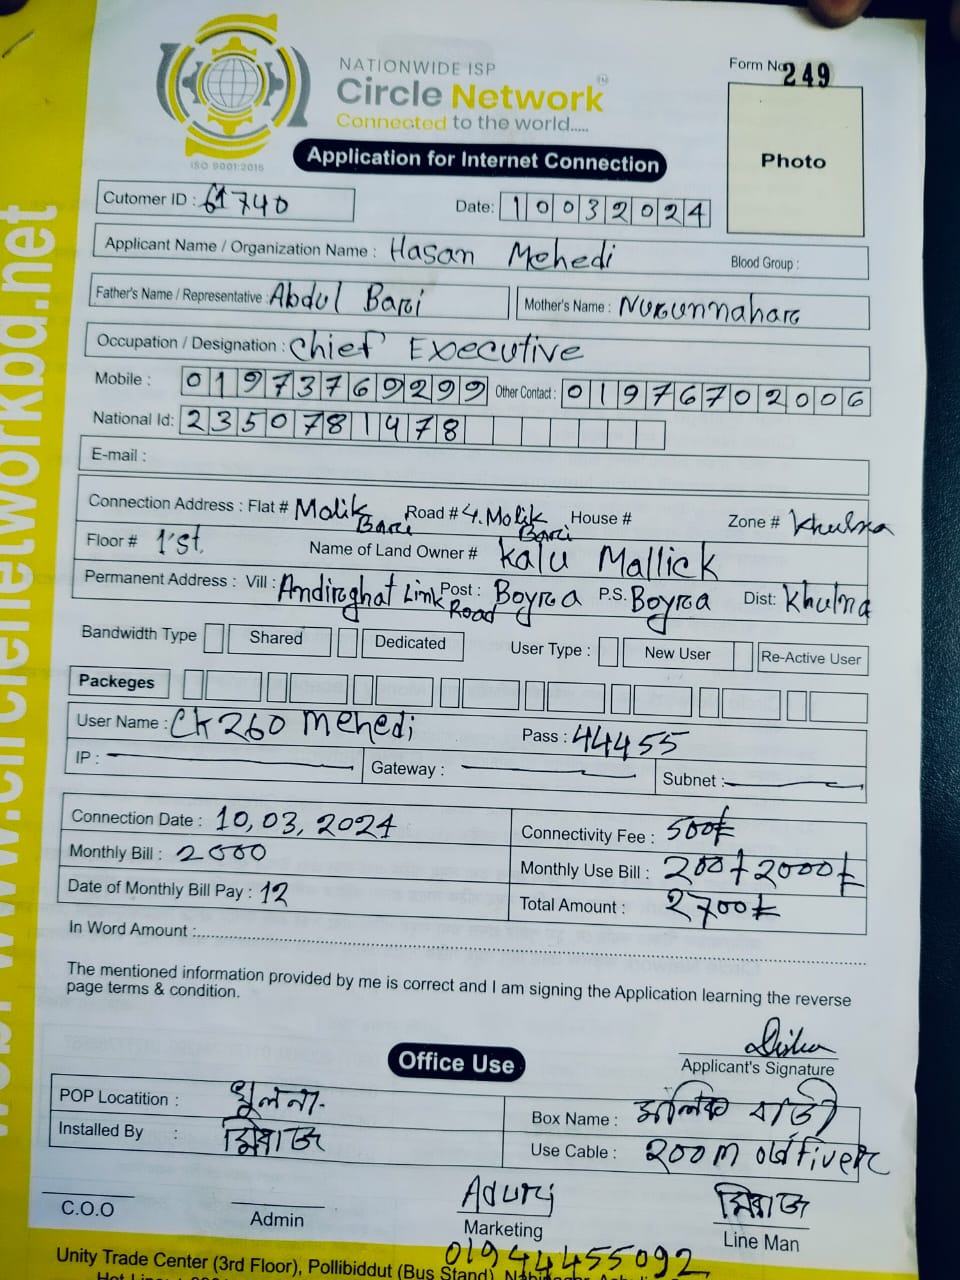 NATIONWIDE ISP
Circle Network
Connected to the world.....
ISO 9001:2015
Form No 249
Photo
Application for Internet Connection
Cutomer ID : 61740
Date: 10032024
Applicant Name / Organization Name : Hasan Mehedi Blood Group :
Father's Name / Representative : Abdul Bari Mother's Name : Nurunnahar
Occupation / Designation : Chief Executive
Mobile : 01973769299 Other Contact : 01976702006
National Id: 2350781478
E-mail :
Connection Address : Flat # Molik Bari Road # 4. Molik Bari House # Zone # Khulna
Floor # 1'st. Name of Land Owner # Kalu Mallick
Permanent Address : Vill : Andirghat Link Road Post : Boyra P.S. Boyra Dist: Khulna
Bandwidth Type Shared Dedicated User Type : New User Re-Active User
Packeges
User Name : CK260 mehedi Pass : 44455
IP : Gateway : Subnet :
Connection Date : 10,03,2024 Connectivity Fee : 500৳
Monthly Bill : 2000 Monthly Use Bill : 200+2000৳
Date of Monthly Bill Pay : 12 Total Amount : 2700৳
In Word Amount :
The mentioned information provided by me is correct and I am signing the Application learning the reverse
page terms & condition.
Applicant's Signature
Office Use
POP Locatition : খুলনা- Box Name : মালিক বাড়ী
Installed By : মিরাজ Use Cable : 200m old Fiver
C.O.O Admin Aduri Marketing মিরাজ Line Man
01944455092
Unity Trade Center (3rd Floor), Pollibiddut (Bus Stand),
www.circlenetworkbd.net